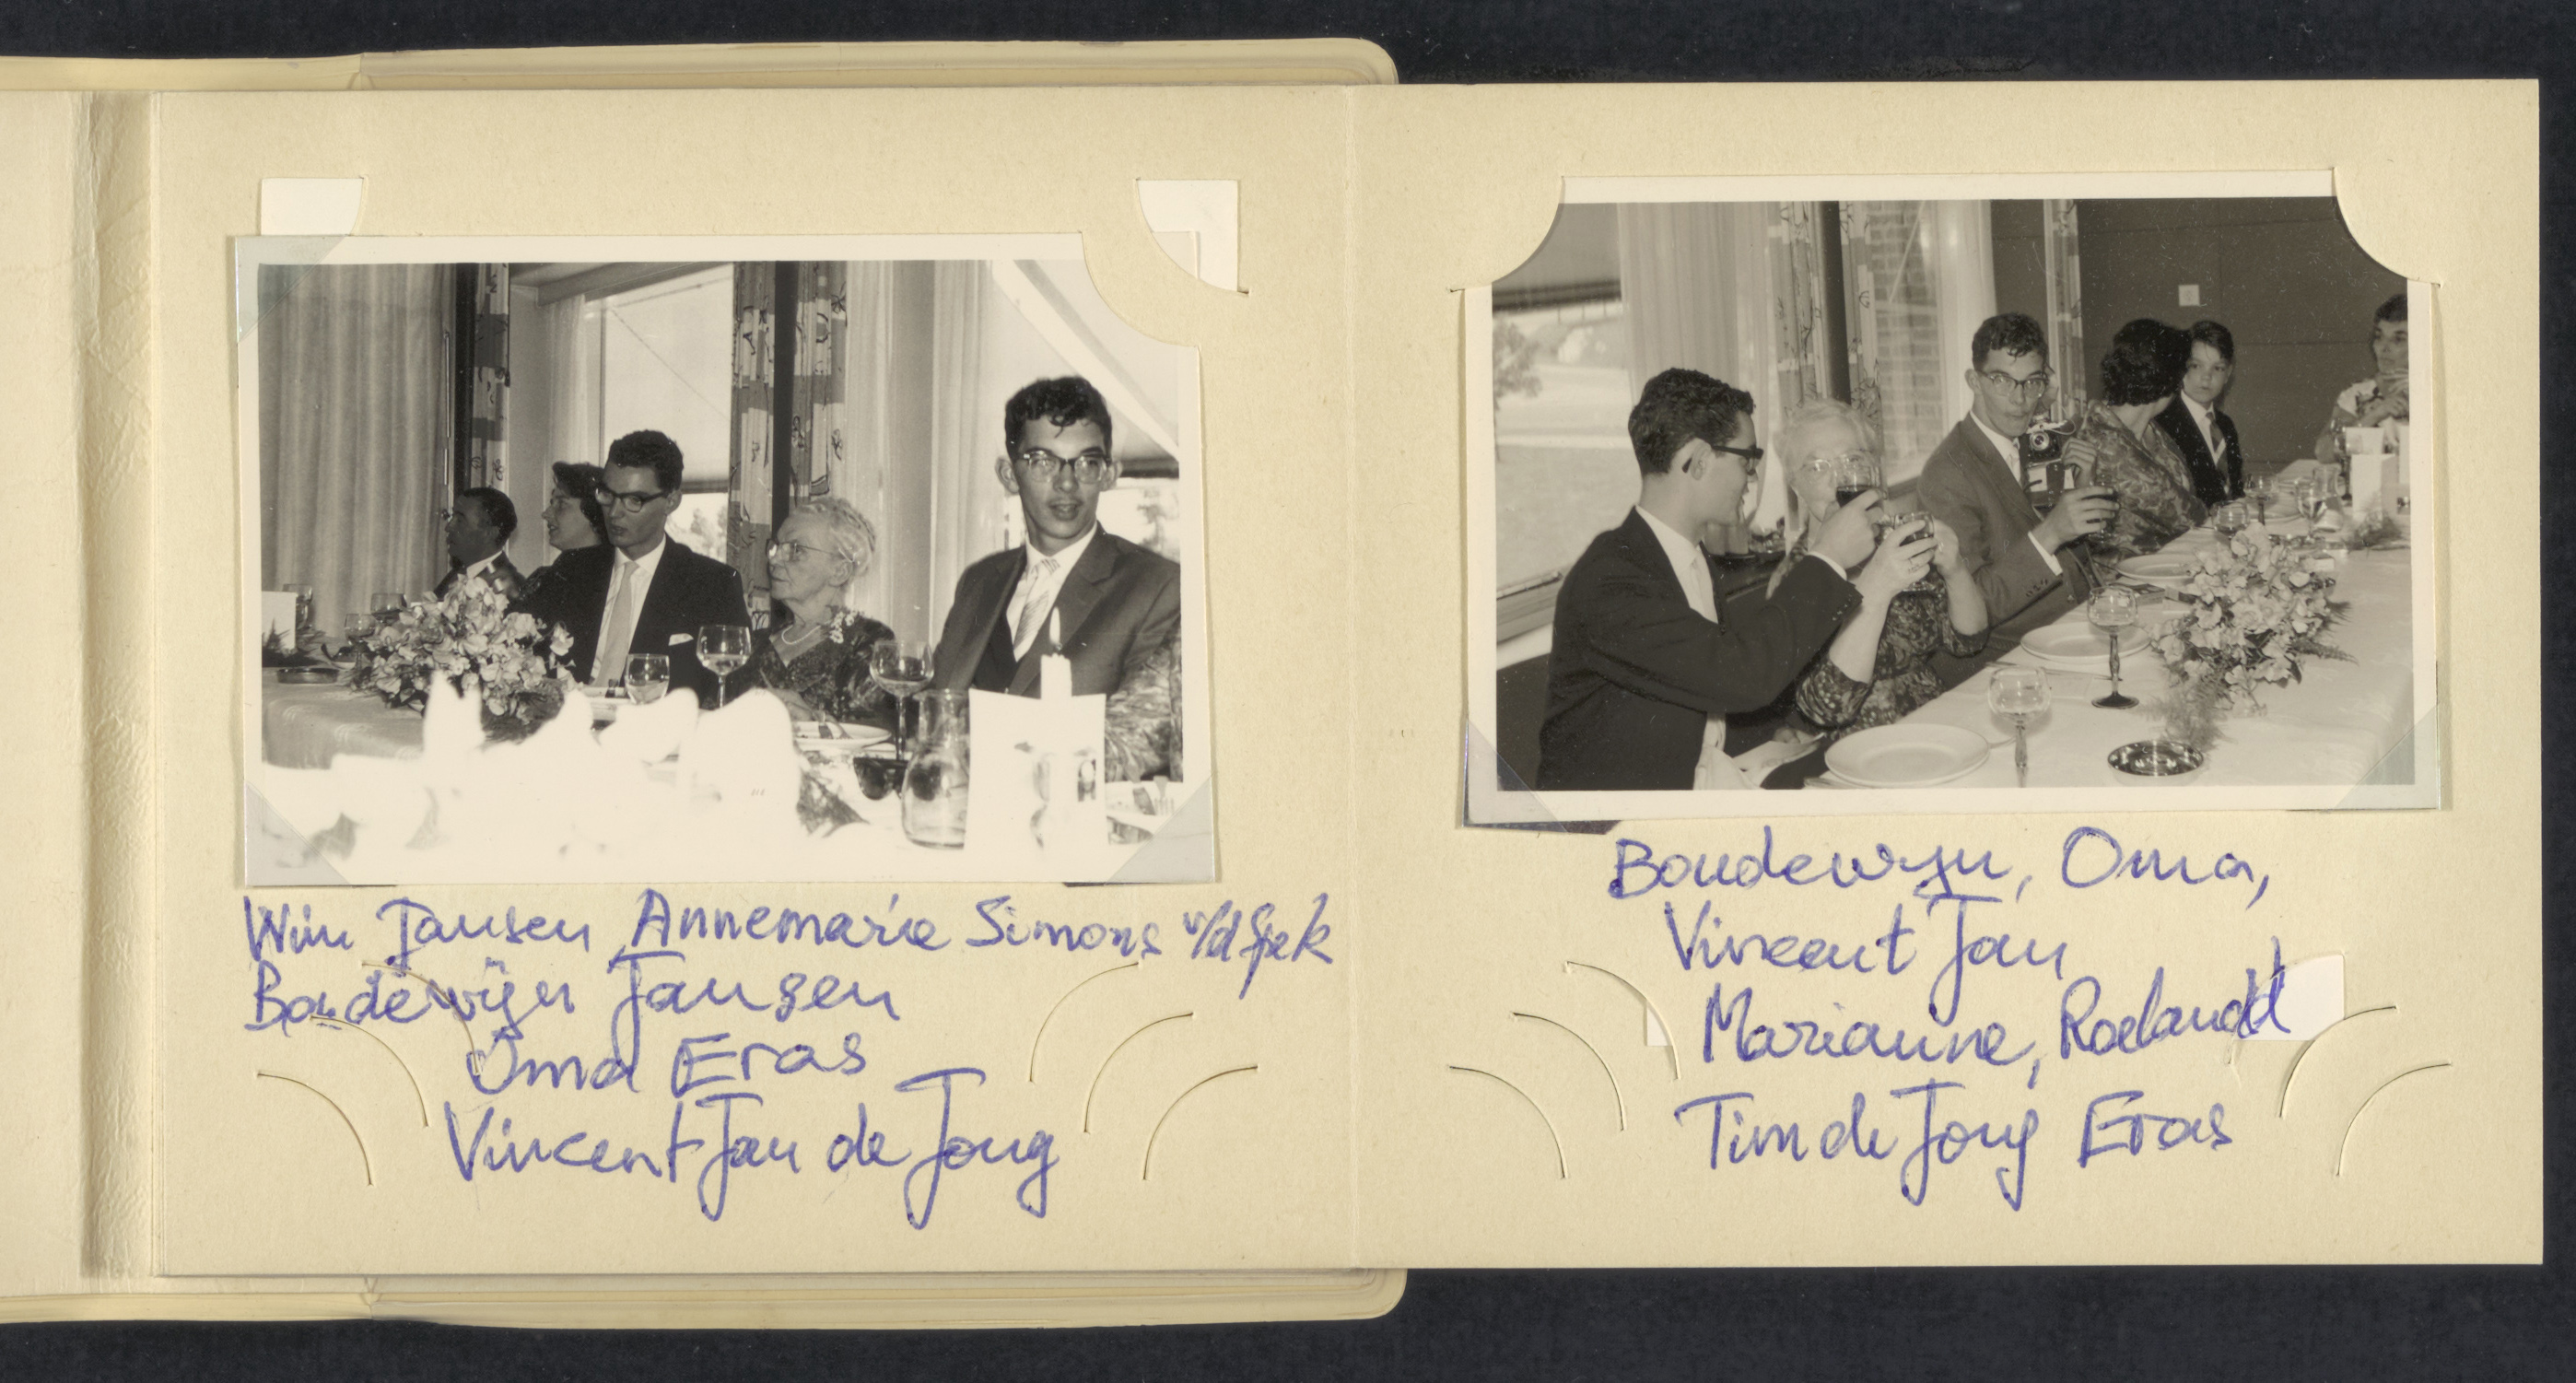 Wim Jansen, Annemarie Simons v/d Spek
Boudewijn Jansen
Oma Eras
Vincent Jan de Jong
Boudewijn, Oma,
Vincent Jan
Marianne, Roeland
Tim de Jong Eras